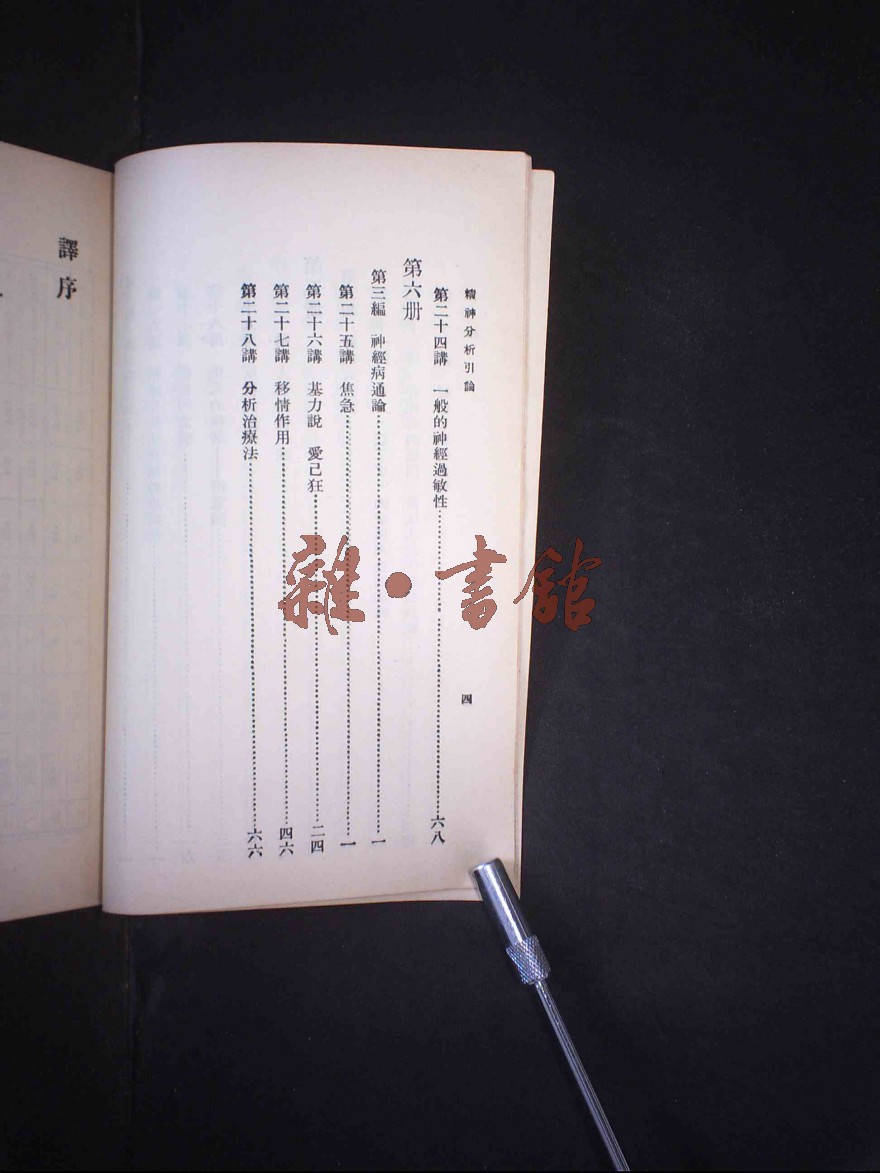 精神分析引論
四
第二十四講 一般的神經過敏性……六八
第六册
第三編 神經病通論……一
第二十五講 焦急……一
第二十六講 基力說 愛己狂……二四
第二十七講 移情作用……四六
第二十八講 分析治療法……六六
譯序
雜·書館